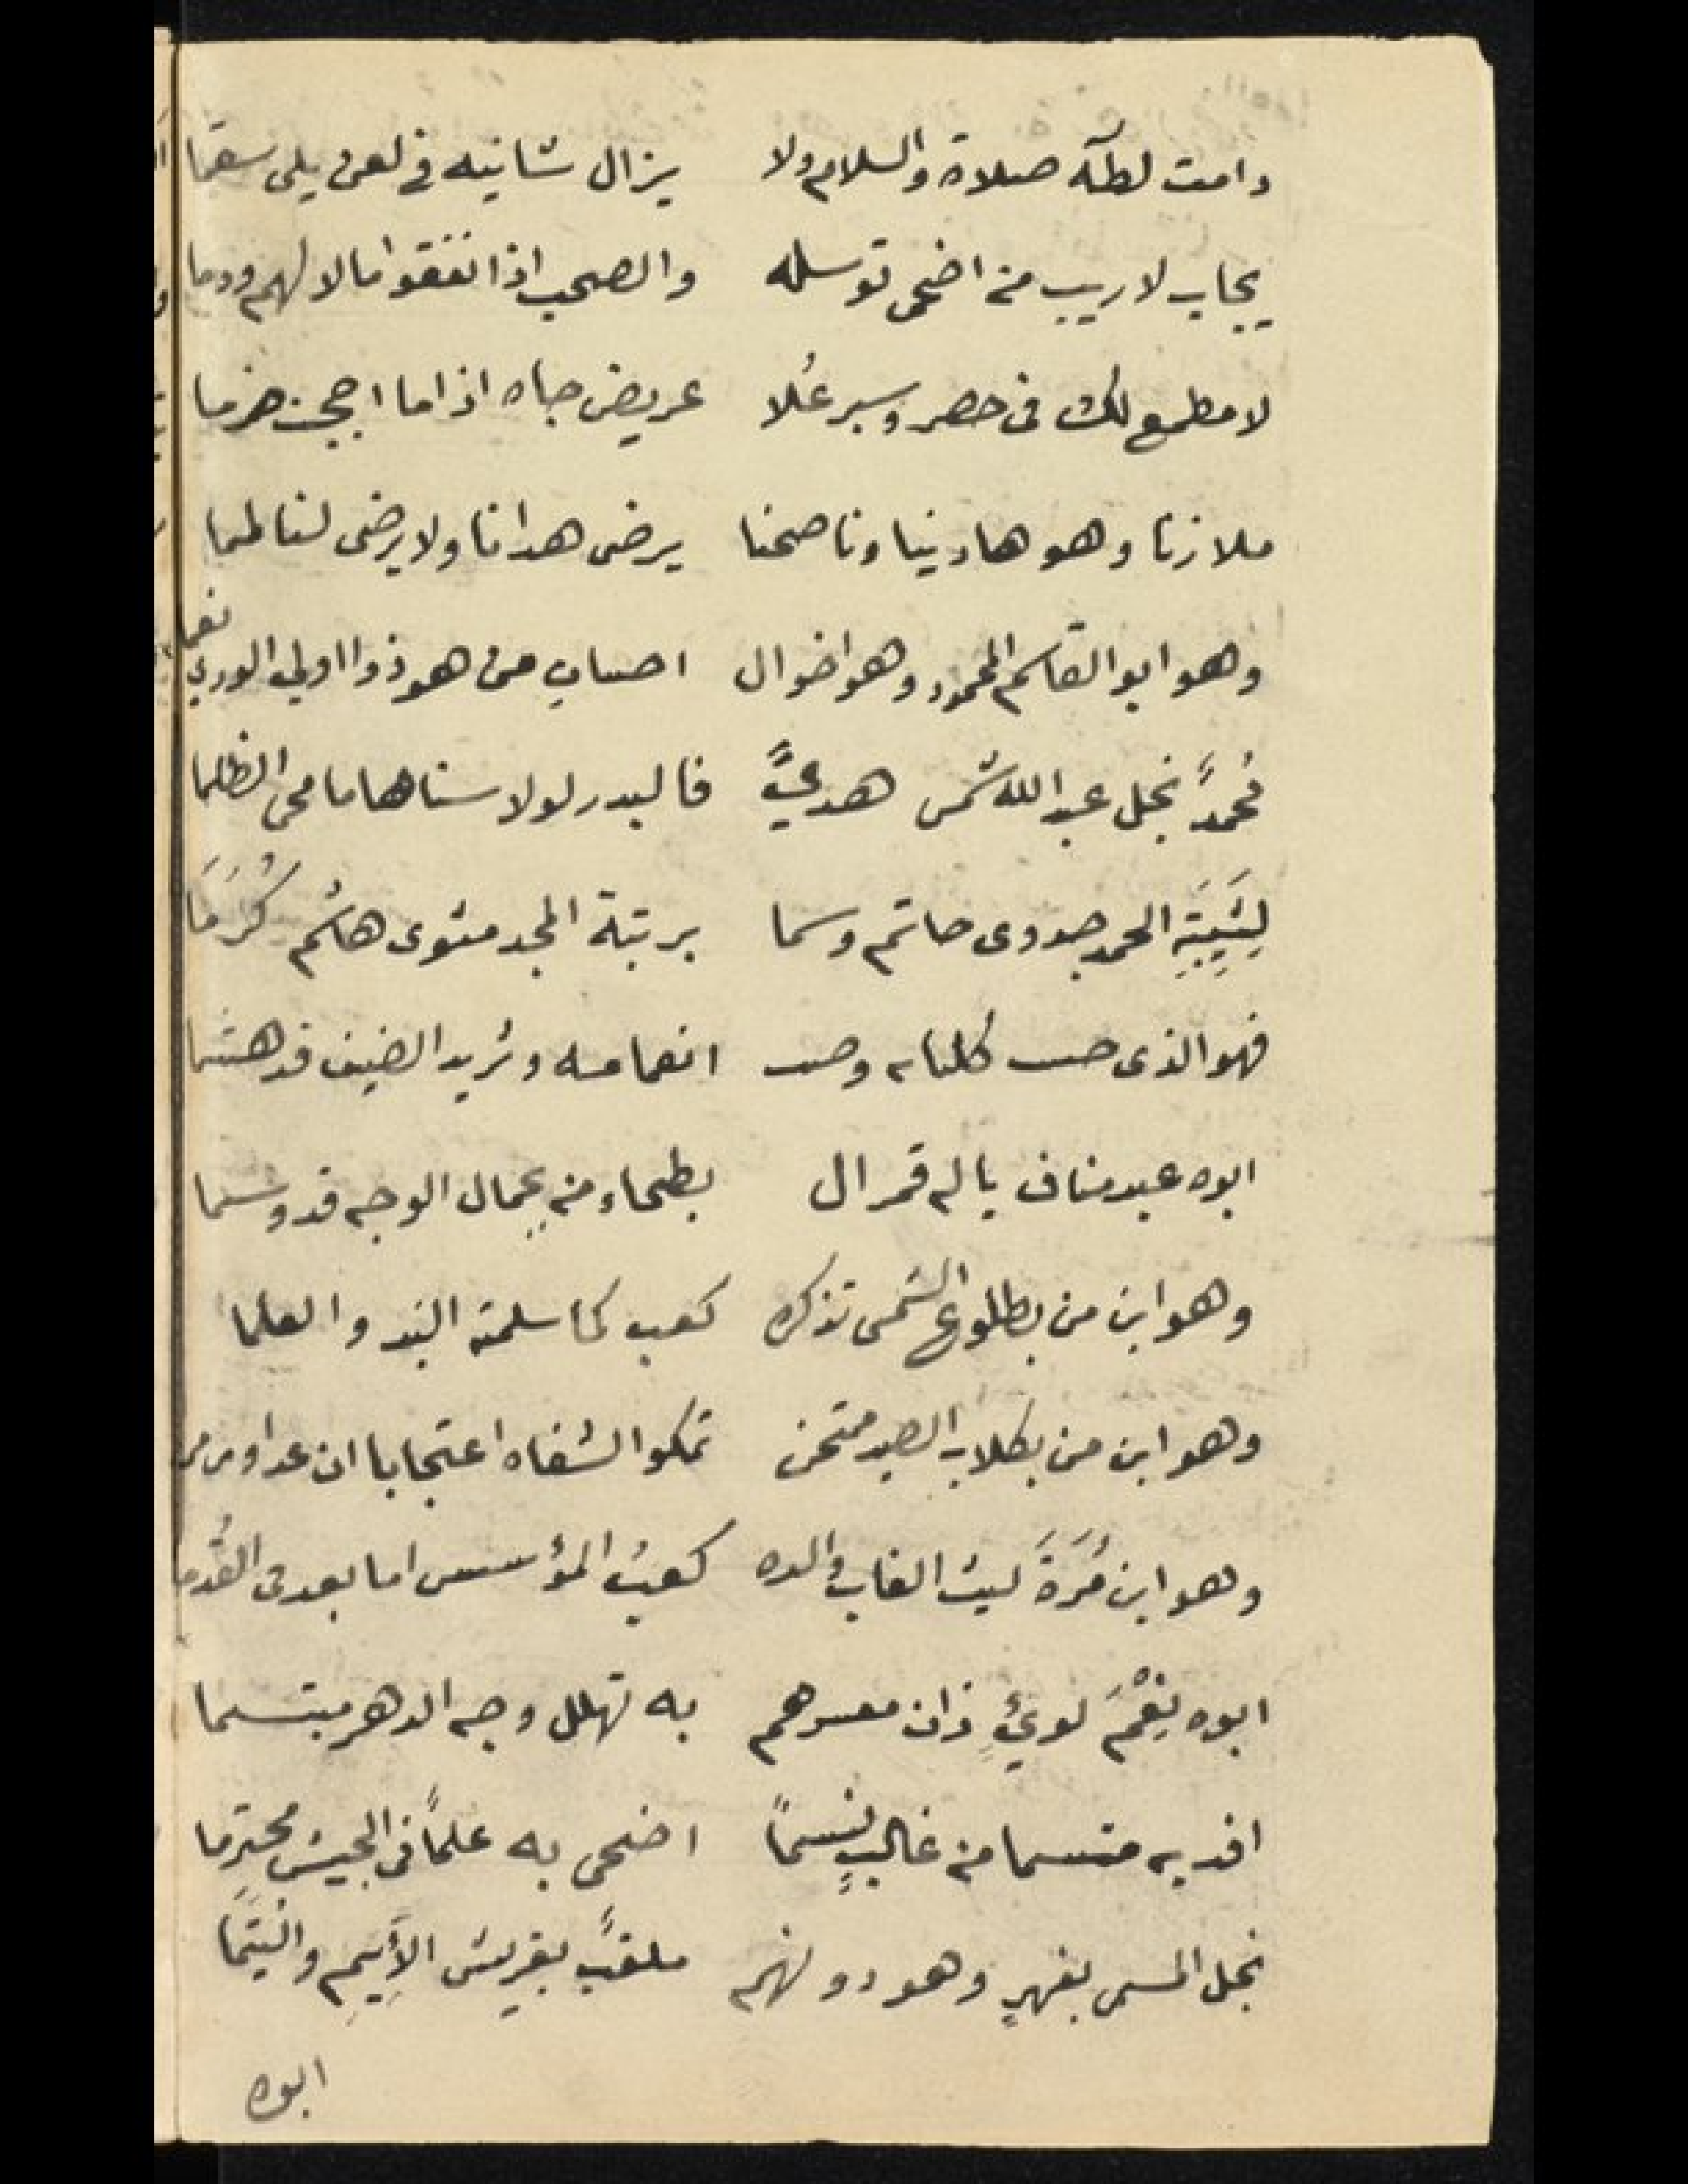 دامت لطٰه صلاة والسلام ولا يزال شانيه في لعن يلى سقما
يجاب لا ريب من اضحى توسله والصحب اذ انفقوا مالا لهم ودما
لا مطمع لك فى حصر وسبر عُلا عريض جاه اذا ما اججت ضرما
ملاذنا وهو هادينا وناصحنا يرضى هدانا ولا يرضى لنا لمما
وهو ابو القاسم المحمود وهو اخوال احساب من هو ذوا اولى الورى نعما
مُحمدٌ نجل عبدالله شمس هدىً فالبدر لولا سناها ما محى الظلما
لِشَيبَةِ الحمد جدوى حاتم وسما برتبة المجد مثوى هاشم كُرَمَا
فهو الذى انعامه وثريد الضيف قد هشما
ابوه عبد مناف ياله قمر ال بطحاء من جمال الوجه قد وسما
وهو ابن من بطلوع الشمس تذكره كعب كما سلمته البند والعلما
وهو ابن من بكلاب الصيد ممتحن تمكوا الشفاه اعتجابا ان عدا
وهو ابن مُرَةَ ليث الغاب والده كعبُ المؤسس اما بعد فى القُدما
ابوه نِعْمَ لوىٍّ زان معسرهم به تهلل وجه الدهر مبتسما
افديه من غالبٍ اضحى به علماً فى الجيش محترما
نجل المسمى بفهرٍ وهو دونهم ملقبٌ بقريش الأَيِمِ واليَتَمَا
ابوه